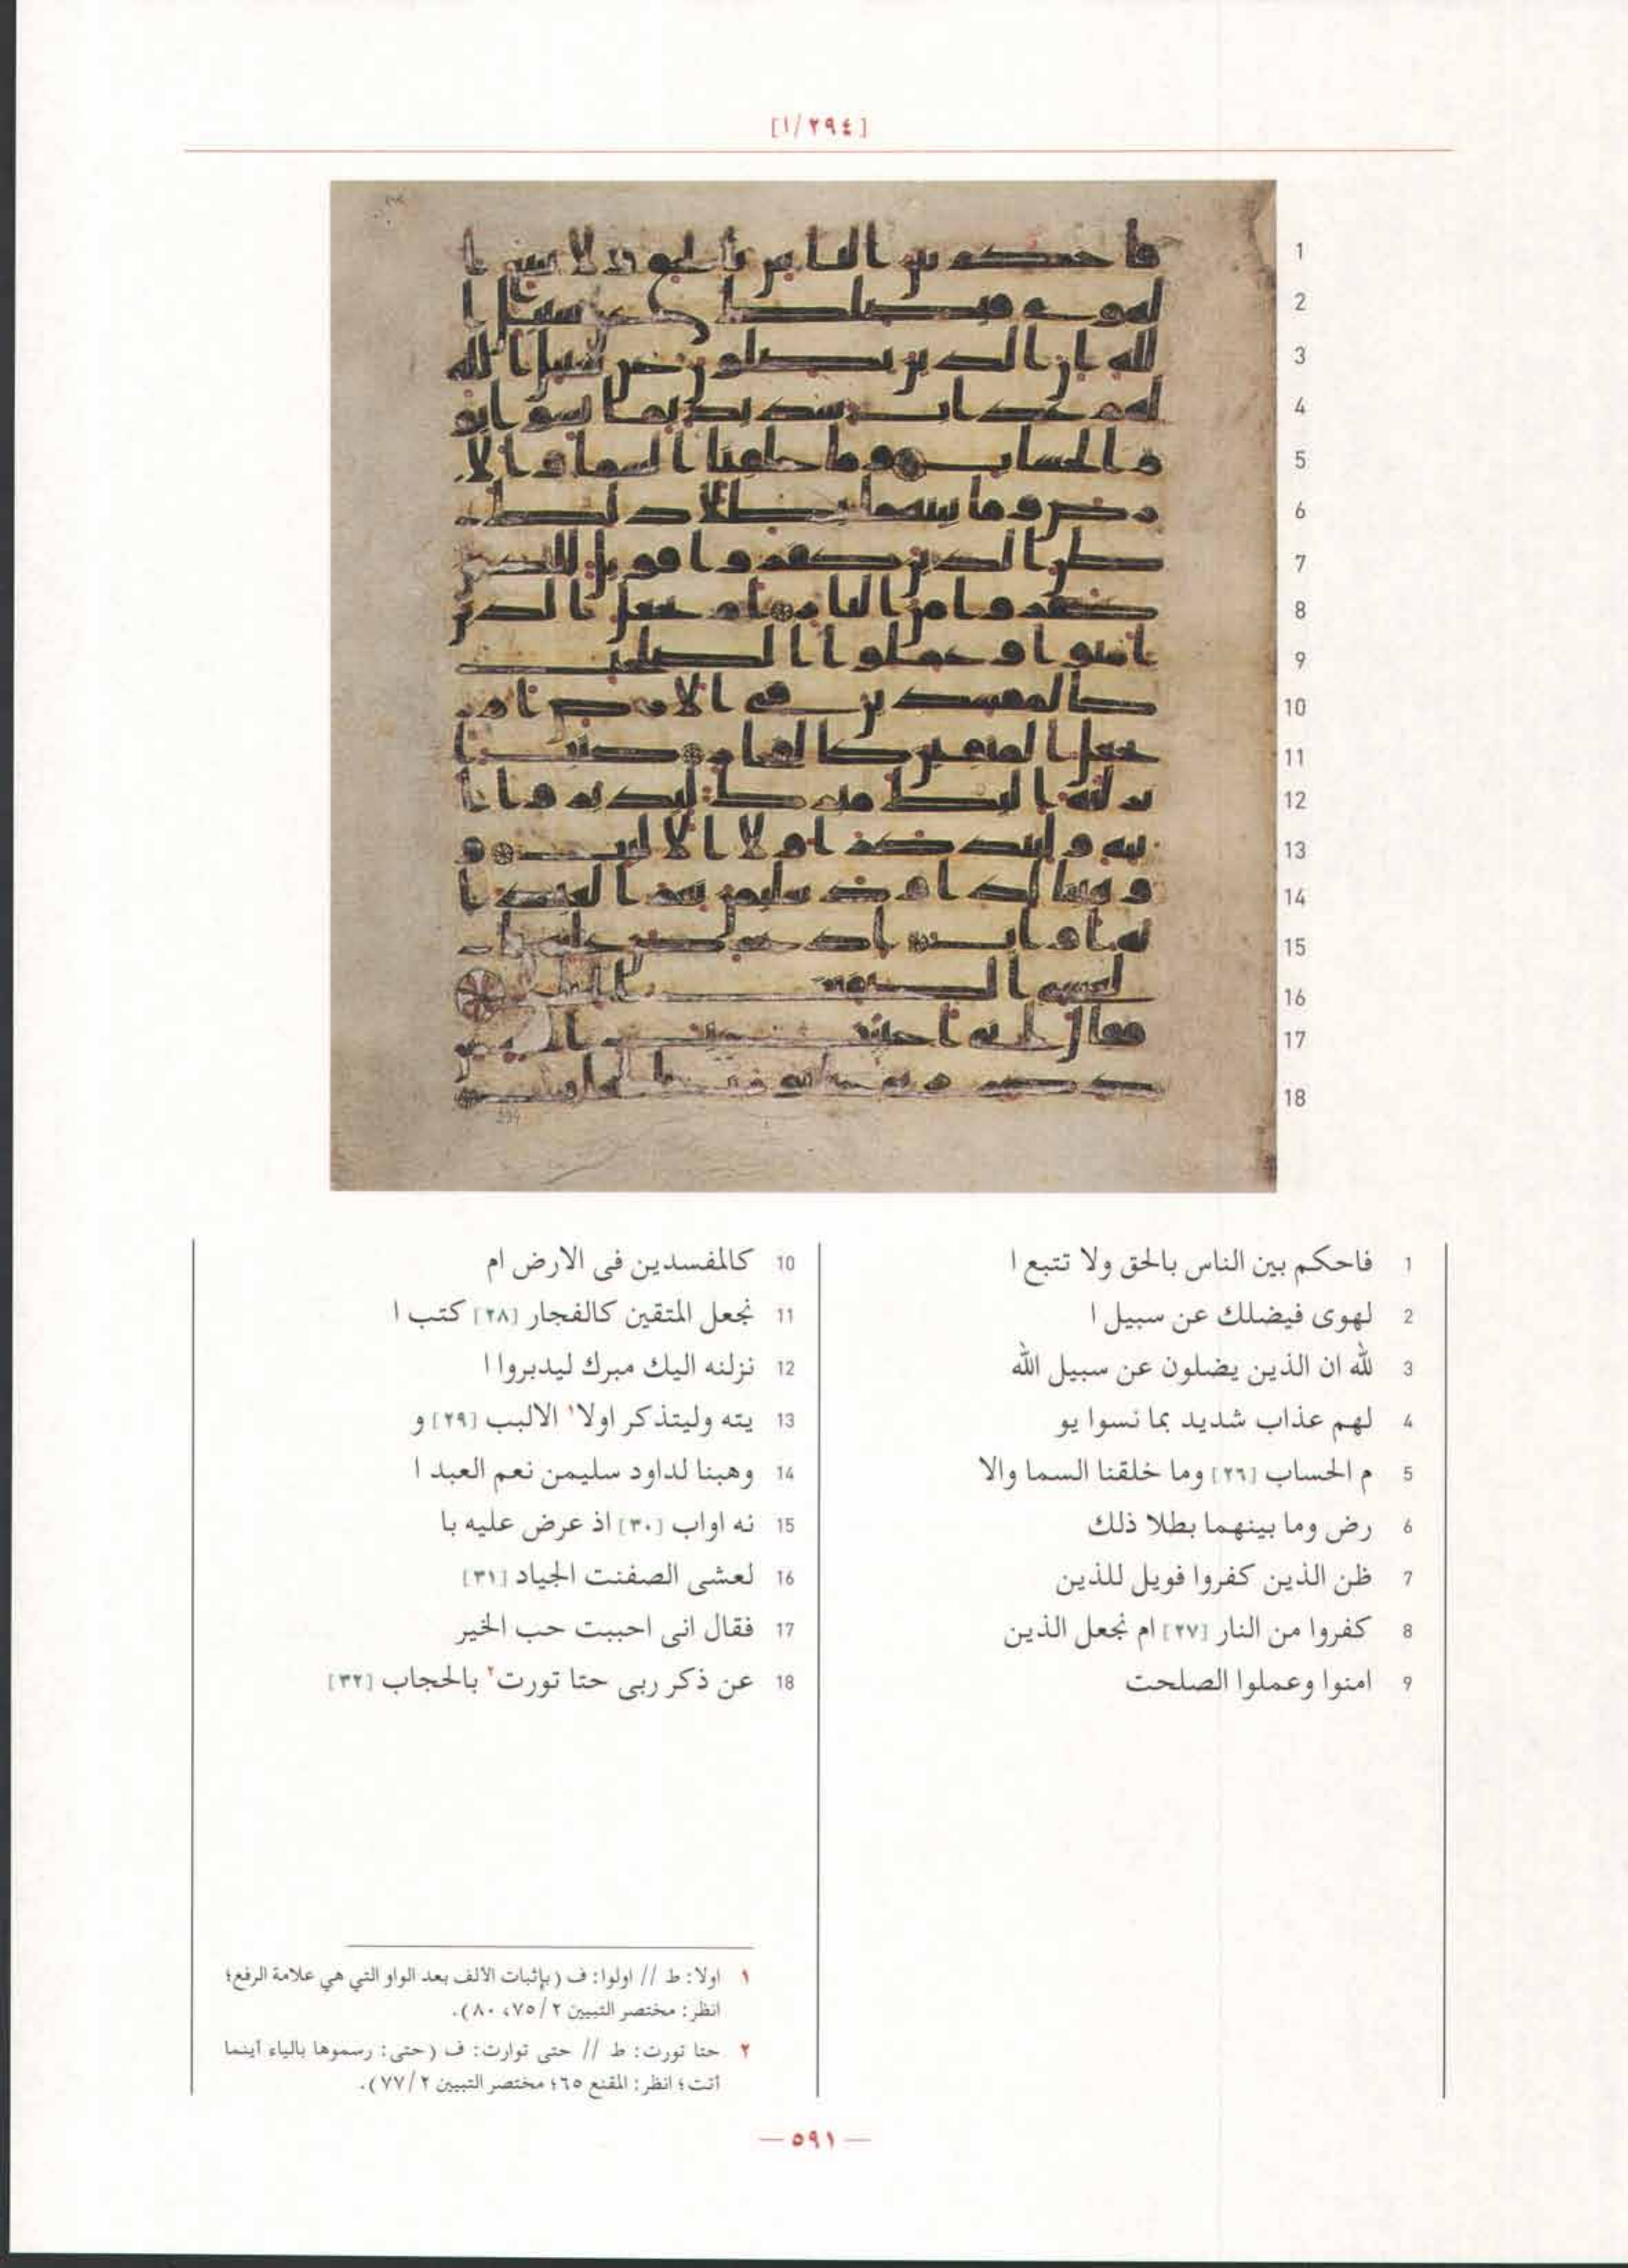 [١/٢٩٤]
1 فاحكم بين الناس بالحق ولا تتبع ا
2 لهوى فيضلك عن سبيل ا
3 لله ان الذين يضلون عن سبيل الله
4 لهم عذاب شديد بما نسوا يو
5 م الحساب [٢٦] وما خلقنا السما والا
6 رض وما بينهما بطلا ذلك
7 ظن الذين كفروا فويل للذين
8 كفروا من النار [٢٧] ام نجعل الذين
9 امنوا وعملوا الصلحت
10 كالمفسدين فى الارض ام
11 نجعل المتقين كالفجار [٢٨] كتب ا
12 نزلنه اليك مبرك ليدبروا ا
13 يته وليتذكر اولا١ الالبب [٢٩] و
14 وهبنا لداود سليمن نعم العبد ا
15 نه اواب [٣٠] اذ عرض عليه با
16 لعشى الصفنت الجياد [٣١]
17 فقال انى احببت حب الخير
18 عن ذكر ربى حتا تورت٢ بالحجاب [٣٢]
١ اولا: ط // اولوا: ف (بإثبات الالف بعد الواو التي هي علامة الرفع؛
انظر: مختصر التبيين ٢/ ٧٥، ٨٠).
٢ حتا تورت: ط // حتى توارت: ف (حتى: رسموها بالياء أينما
أتت؛ انظر: المقنع ٦٥؛ مختصر التبيين ٢/ ٧٧).
— ٥٩١ —